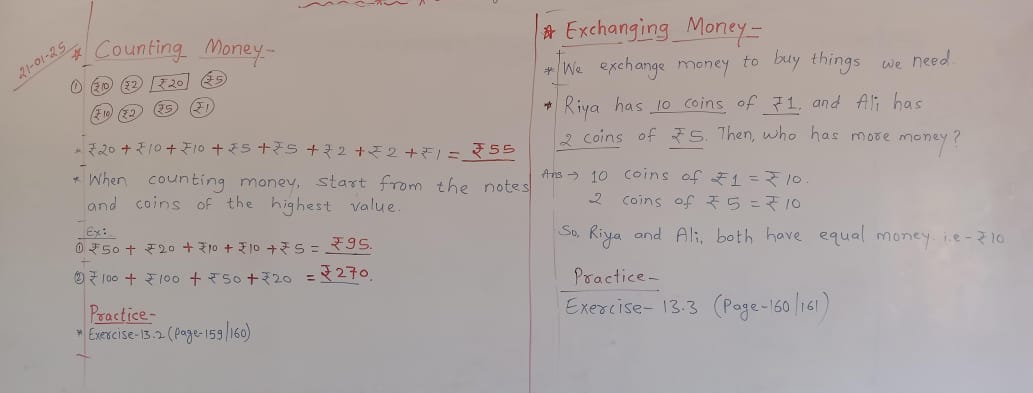 21-01-25
* Counting Money-
① ₹10 ₹2 ₹20 ₹5
₹10 ₹2 ₹5 ₹1
* ₹20 + ₹10 + ₹10 + ₹5 + ₹5 + ₹2 + ₹2 + ₹1 = ₹55
* When counting money, start from the notes
and coins of the highest value.
Ex:
① ₹50 + ₹20 + ₹10 + ₹10 + ₹5 = ₹95.
② ₹100 + ₹100 + ₹50 + ₹20 = ₹270.
Practice-
* Exercise-13.2 (Page-159/160)
* Exchanging Money-
* We exchange money to buy things we need.
* Riya has 10 coins of ₹1. and Ali has
2 coins of ₹5. Then, who has more money?
Ans → 10 coins of ₹1 = ₹10.
2 coins of ₹5 = ₹10
So, Riya and Ali, both have equal money. i.e - ₹10
Practice-
Exercise- 13.3 (Page-160/161)